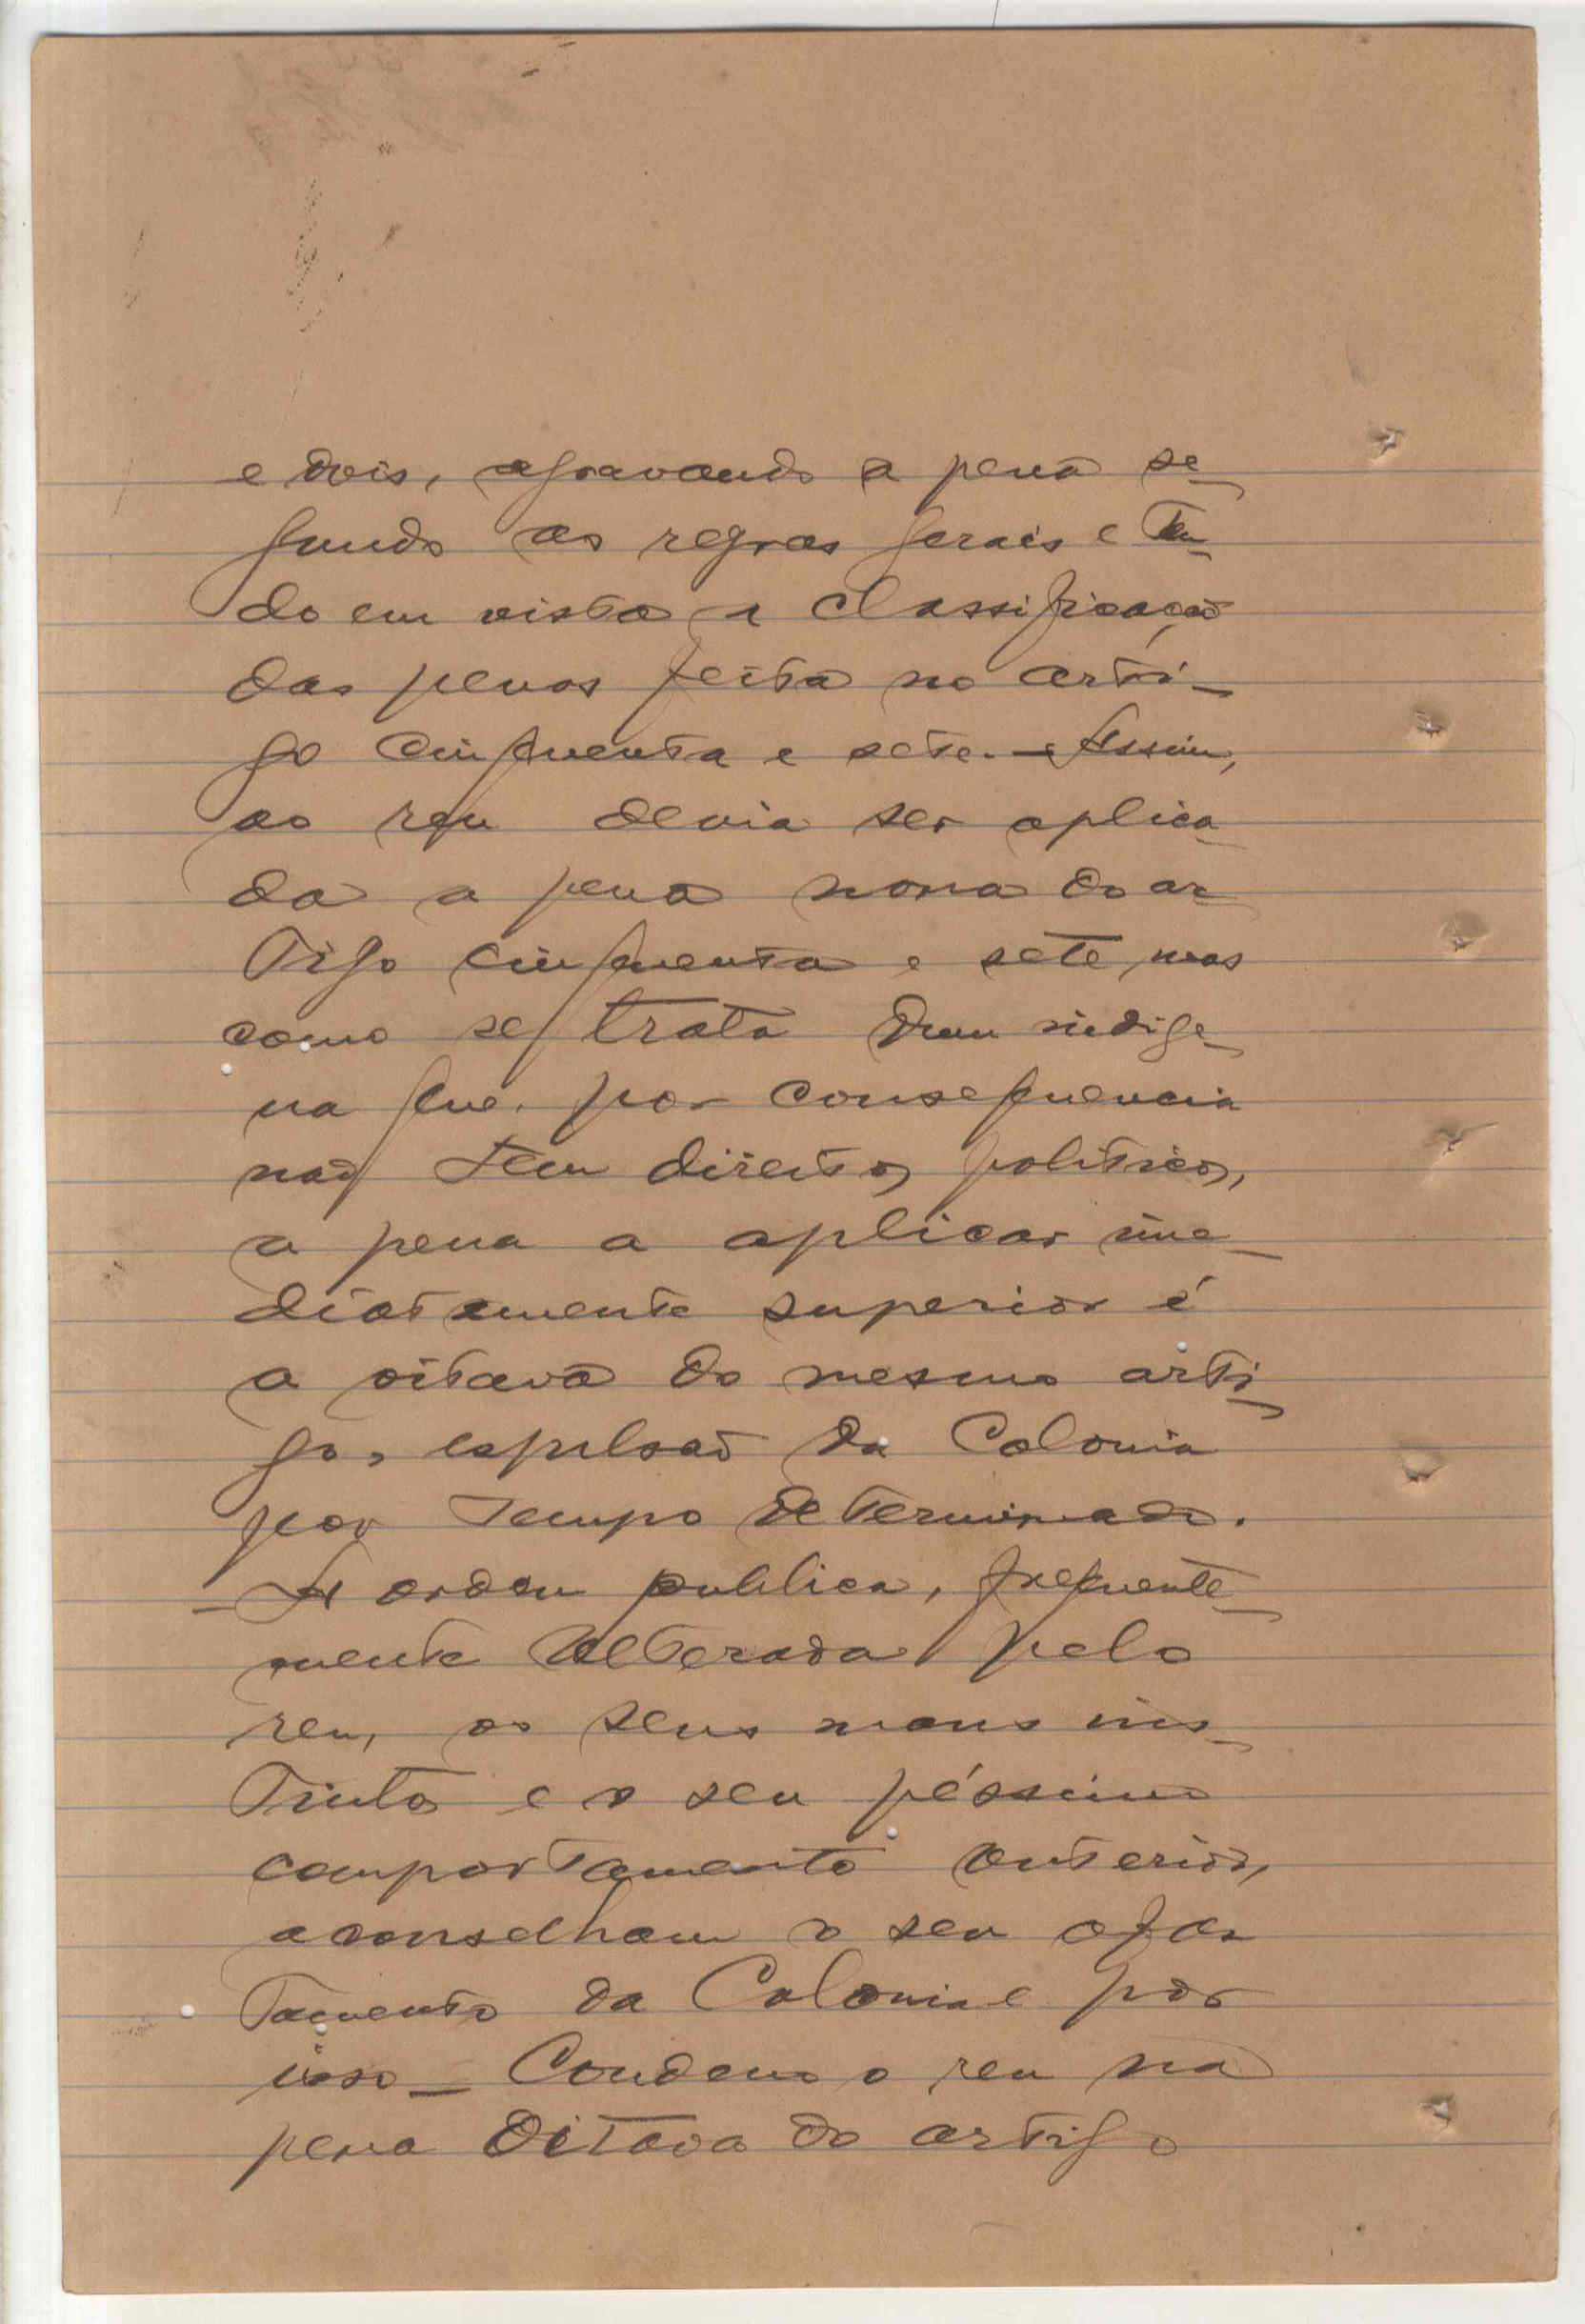 e dois, agravando a pena se-
gundo as regras gerais e ten-
do em vista a classificação
das penas feita no arti-
go cinquenta e sete. — Assim,
ao reu devia ser aplica-
da a pena nona do ar-
tigo cinquenta e sete, mas
como se trata dum indige-
na que, por consequencia
não tem direitos politicos,
a pena a aplicar ime-
diatamente superior é
a oitava do mesmo arti-
go, expulsão da Colonia
por tempo determinado.
— A ordem publica, frequente-
mente alterada pelo
reu, os seus maus ins-
tintos e o seu péssimo
comportamento anterior,
aconselham o seu afas
tamento da Colonia e por
isso — Condeno o reu na
pena Oitava do artigo